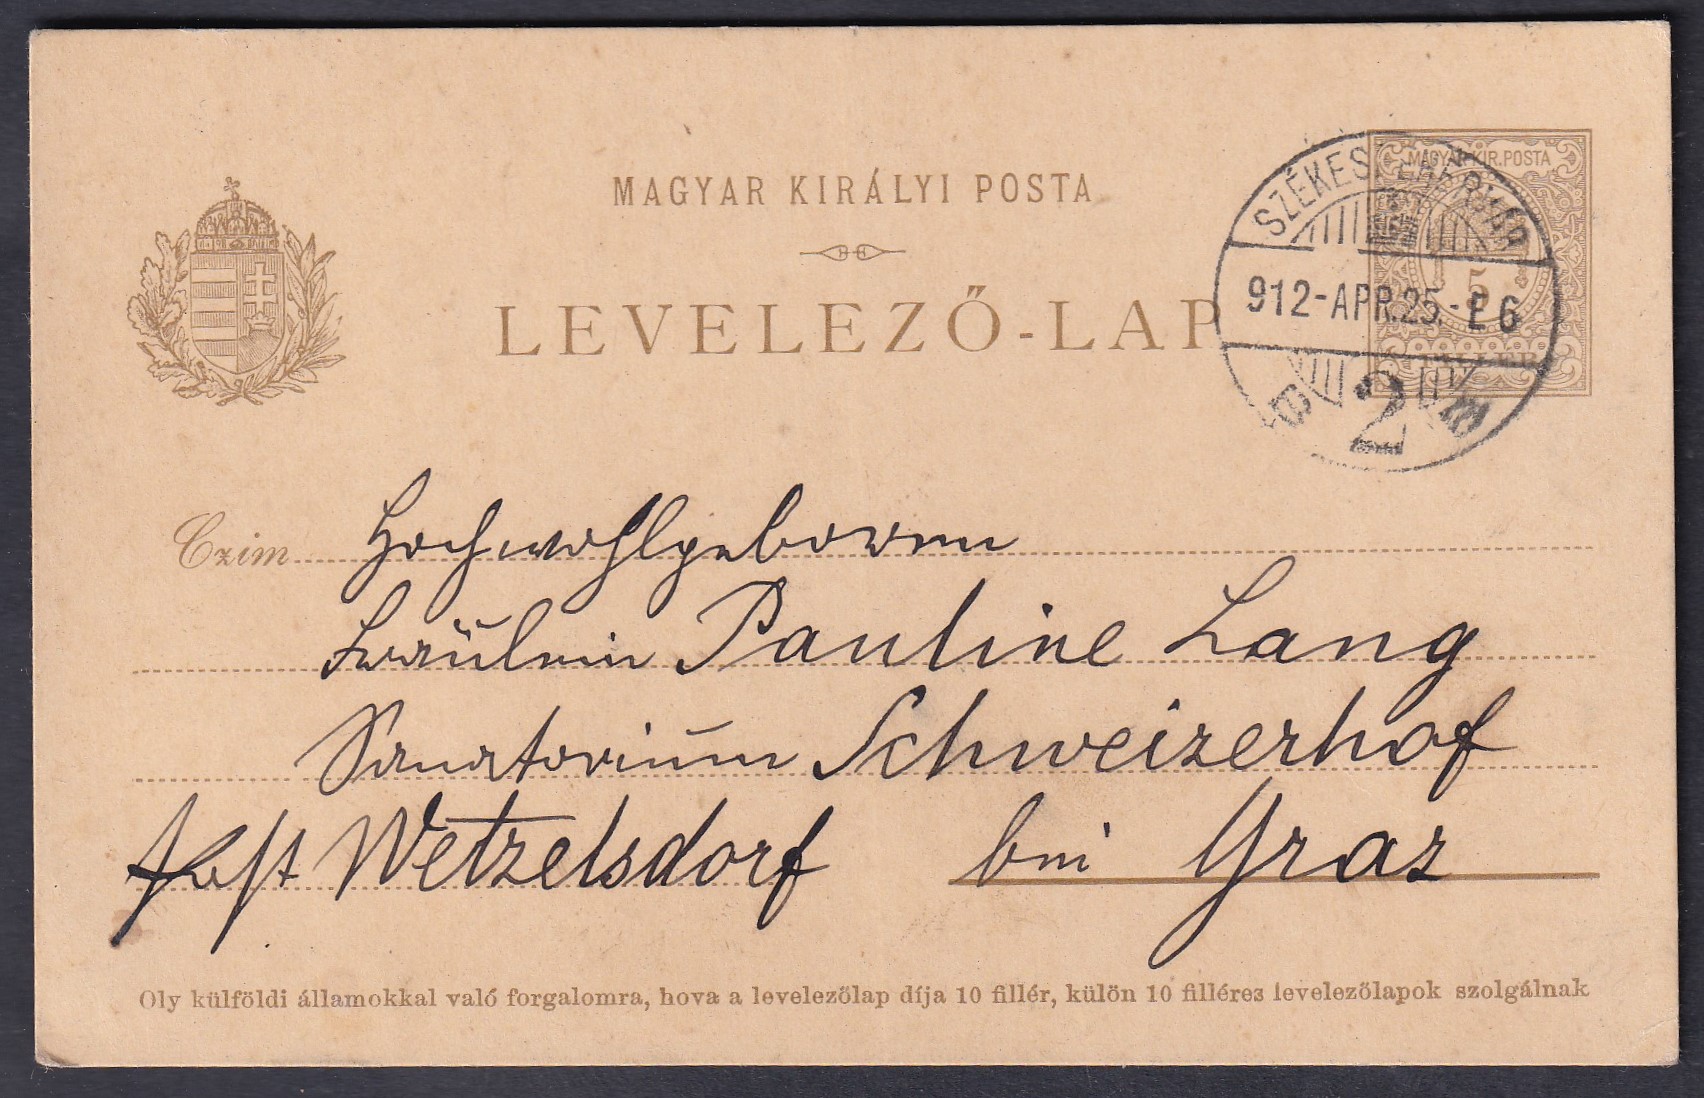 MAGYAR KIRÁLYI POSTA
LEVELEZŐ-LAP
MAGYAR KIR. POSTA
5
FILLÉR
SZÉKESFEHÉRVÁR
912-APR.25.-E6
2
Czim
Hochwohlgeboren
Fräulein Pauline Lang
Sanatorium Schweizerhof
Post Wetzelsdorf bei Graz
Oly külföldi államokkal való forgalomra, hova a levelezőlap díja 10 fillér, külön 10 filléres levelezőlapok szolgálnak